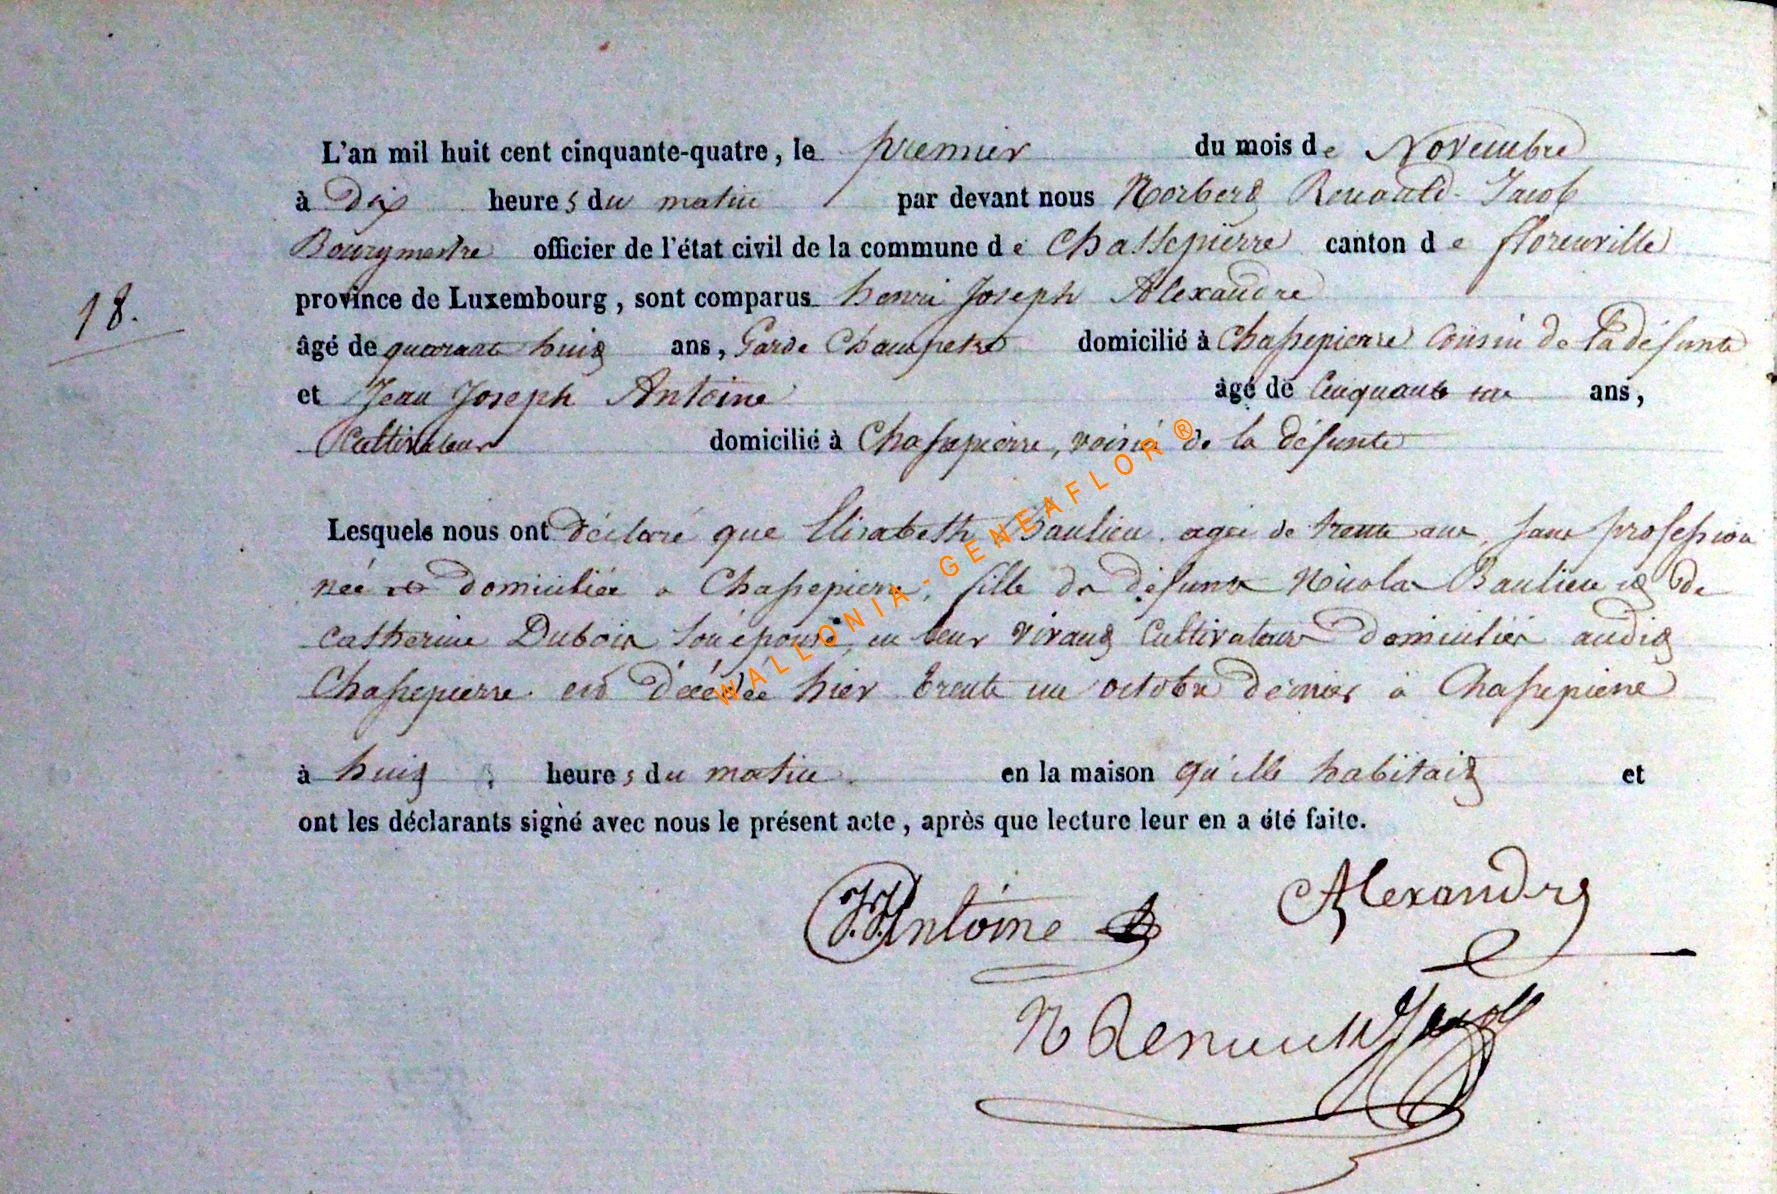 L'an mil huit cent cinquante-quatre, le premier du mois de Novembre
à Dix heures du matin par devant nous Norbert Renauld-Jacob
Bourgmestre officier de l'état civil de la commune de Chassepierre canton de florenville
18.
province de Luxembourg, sont comparus henri Joseph Alexandre
âgé de quarante huit ans, Garde Champetre domicilié à Chassepierre Cousin de la défunte
et Jean Joseph Antoine âgé de Cinquante ans,
Cultivateur domicilié à Chassepierre, voisin de la défunte
Lesquels nous ont déclaré que Elisabeth Baulieu agée de trente ans, sans profession
née et domiciliée à Chassepierre, fille de défunt Nicolas Baulieu et de
Catherine Dubois son épouse, en leur vivant Cultivateurs domiciliés audit
Chassepierre est décédée hier trente un octobre dernier à Chassepierre
à huit heures du matin en la maison qu'elle habitait et
ont les déclarants signé avec nous le présent acte, après que lecture leur en a été faite.
J.J. Antoine Alexandre
N Renauld Jacob
WALLONIA-GENEAFLOR ®